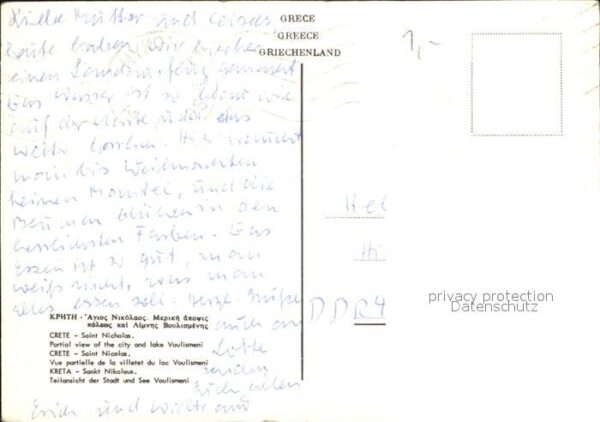 Liebe Mutter und
heute haben wir hierher
einen Landausflug gemacht
Das Wasser ist so blau wie
auf der Karte und das
Wetter herrlich. Hier braucht
man bis Weihnachten
keinen Mantel, und die
Blumen blühen in den
herrlichsten Farben. Das
Essen ist so gut, man
weiß nicht, was man
alles essen soll. Herzl. Grüße
auch an
Lotte
senden
Euch allen
Erich und
GRECE
GREECE
GRIECHENLAND
1,-
ΚΡΗΤΗ - Ἅγιος Νικόλαος. Μερική ἄποψις
πόλεως καί Λίμνης Βουλισμένης
CRETE - Saint Nicholas.
Partial view of the city and lake Voulismeni
CRETE - Saint Nicolas.
Vue partielle de la villetet du lac Voulismeni
KRETA - Sankt Nikolaus.
Teilansicht der Stadt und See Voulismeni
Hel
DDR 4
privacy protection
Datenschutz